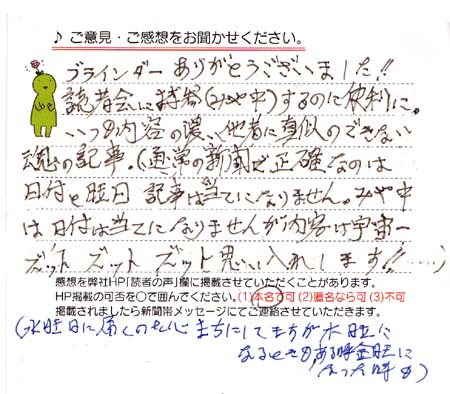 ♪ ご意見・ご感想をお聞かせください。
ブラインダーありがとうございました!!
読者会に持参(みや中)するのに便利に。
いつも内容の濃い、他者に真似のできない
魂の記事。(通常の新聞で正確なのは
日付と曜日 記事は当てになりません。みや中
は日付は当てになりませんが内容は宇宙一
ズット ズット ズット思い入れします!!……)
感想を弊社HP「読者の声」欄に掲載させていただくことがあります。
HP掲載の可否を○で囲んでください。(1)本名で可 (2)匿名なら可 (3)不可
掲載されましたら新聞帯メッセージにてご連絡させていただきます。
(水曜日に届くのを心まちにしてますが木曜に
なるときもある時金曜に
なった時も)